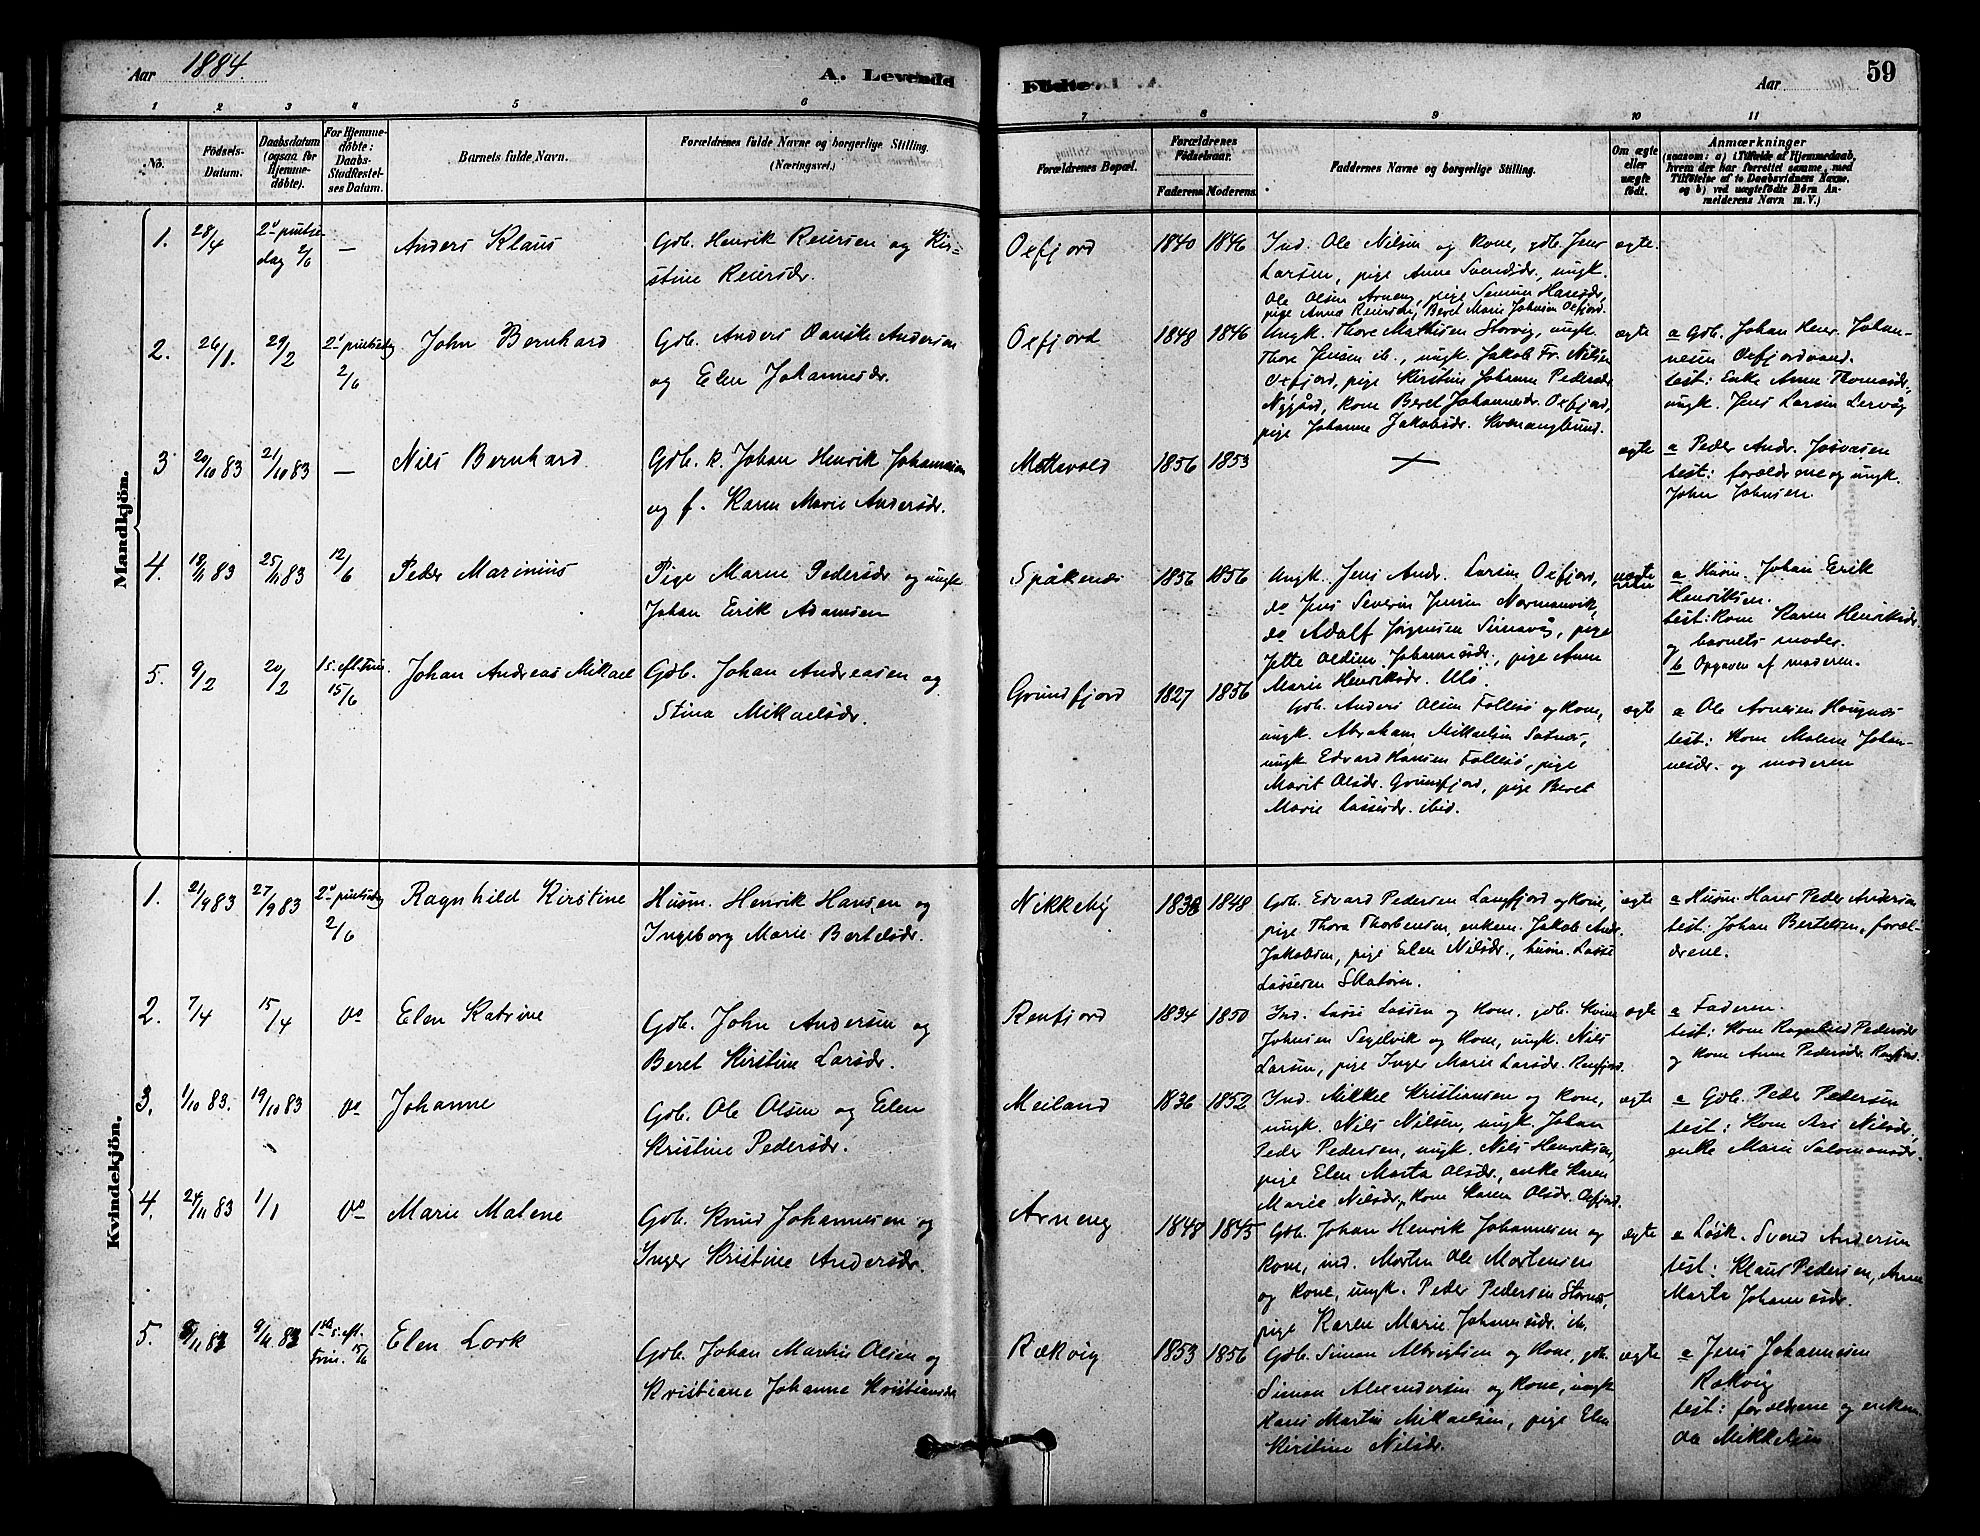 Aar 1884.
A. Levende
Fødte.
Aar
59
1 2 3 4 5 6 7 8 9 10 11
No.
Fødsels-
Datum.
Daabsdatum
(ogsaa for
Hjemme-
døbte).
For Hjemme-
døbte:
Daabs-
Stadfæstel-
ses Datum.
Barnets fulde Navn.
Forældrenes fulde Navne og borgerlige Stilling.
(Næringsvei.)
Forældrenes Bopæl.
Forældrenes
Fødselsaar.
Faderens Moderens
Faddernes Navne og borgerlige Stilling.
Om ægte
eller
uægte
født.
Anmærkninger
(saasom: a) i Tilfælde af Hjemmedaab,
hvem der har forrettet samme, med
Tilføielse af to Daabsvidners Navne,
og b) ved uægtefødte Børn An-
melderens Navn m.V.)
Mandkjön.
1. 28/4 2d pintse
dag 2/6 — Anders Klaus
Gdb. Henrik Reiersen og Kir-
stine Reiersdr.
Oxfjord 1840 1846
Ind. Ole Nilsen og kone, gdb. Jens
Larsen, pige Anne Svendsdr., ungk.
Ole Olsen Arneng, pige
pige Anna Reiersdr., Beret Marie Johnsen Oxfjord.
ægte.
2. 26/1. 29/2 2d pintsedag
2/6
John Bernhard
Gdb. Anders Danste Andersen
og Elen Johannesdr.
Oxfjord 1848 1846
Ungk. Thore Mathisen Storvig, ungk.
Thore Jensen ib., ungk. Jakob Fr. Nilsen
Oxfjord, pige Kirstine Johanne Pedersdr.
Nygård, kone Beret Johannesdr. Oxfjord,
pige Johanne Jakobsdr. Kvænangbund.
ægte
a Gdb. Johan Henr. Johan-
nesen Oxfjordvand.
test: Enke Anne Thomasdr.,
ungk. Jens Larsen Lervåg
3 20/10 83 21/10 83 — Nils Bernhard
Gdb. k. Johan Henrik Johannesen
og f. Karen Marie Andersdr.
Mettevold 1856 1853
ægte
a Peder Andr. Josvasen
test: forældrene og ungk.
John Johnsen.
4. 19/11 83 25/11 83 12/6 Peder Marinius
Pige Marne Pedersdr og ungk
Johan Erik Adamsen
Spåkenes 1856 1856
Ungk. Jens Andr. Larsen Oxfjord,
do Jens Severin Jensen Normanvik,
do Adolf Jørgensen Simavåg, pige
Jette Oldine Johannesdr., pige Anne
Marie Henriksdr. Ulø.
uægte
a Husm. Johan Erik
Henriksen.
test: kone Karen Henriksdr.
og barnets moder.
b Opgaven af moderen.
5. 9/2 20/2 1 s. eft. Trin.
15/6
Johan Andreas Mikael
Gdb. Johan Andreasen og
Stina Mikaelsdr.
Grundfjord 1827 1856
Gdb. Anders Olsen Follesø og kone,
ungk. Abraham Mikkelsen
ungk Edvard Hansen Follesø, pige
Marit Olsdr. Grundfjord, pige Beret
Marie Lassesdr. ibid.
ægte
a Ole Arnesen Haugnes
test: Kone Malene Johan-
nesdr. og moderen
Kvindekjön.
1. 21/9 83 27/9 83 2d pintsedag
2/6
Ragnhild Kirstine
Husm. Henrik Hansen og
Ingeborg Marie Bertelsdr.
Nikkeby 1838 1848
Gdb. Edvard Pedersen Langfjord og kone,
pige Thora Thorbensen, enkem. Jakob Andr.
Jakobsen, pige Elen Nilsdr., husm. Lasse
Lassesen Skatøren.
ægte
a Husm. Hans Peder Andersen
test: Johan Bertelsen, foræl-
drene.
2. 7/4 15/4 do Elen Katrine
Gdb. John Andersen og
Beret Kirstine Larsdr.
Renfjord 1834 1850
Ind. Lasse Lassen og kone, gdb.
Johnsen Segelvik og kone, ungk. Nils
Larsen, pige Inger Marie Larsdr. Renfjord.
ægte
a Faderen.
test: Kone Ragnhild Pedersdr
og kone Anne Pedersdr. Renfjord
3. 1/10 83. 19/10 83 do Johanne
Gdb. Ole Olsen og Elen
Kristine Pedersdr.
Meiland 1836 1852
Ind. Mikkel Kristiansen og kone,
ungk. Nils Nilsen, ungk. Johan
Peder Pedersen, ungk. Nils Henriksen,
pige Elen Marta Olsdr., enke Karen
Marie Nilsdr., kone Karen Olsdr. Oxfjord.
ægte
a Gdb. Peder Pedersen
test: Kone Nilsdr.,
enke Marie Salomonsdr.
4. 24/11 83 1/1 do Marie Malene
Gdb. Knud Johannesen og
Inger Kristine Andersdr.
Arneng 1848 1845
Gdb. Johan Henrik Johannesen og
kone, ind. Morten Ole Mortensen
og kone, ungk. Peder Pedersen Stornes,
pige Karen Marie Johannesdr. ib.
ægte
a Løsk. Svend Andersen
test: Klaus Pedersen, Anne
Marta Johannesdr.
5. 5/11 83 9/11 83 1ste s. eft.
Trin. 15/6
Elen Lork
Gdb. Johan Martin Olsen og
Kristiane Johanne Kristiansdr
Rækvig 1853 1856
Gdb. Simon Albrigtsen og kone, gdb.
Simon Alexandersen og kone, ungk
Hans Martin Mikaelsen, pige Elen
Kirstine Nilsdr.
ægte
a Jens Johannesen
Rakvig
test: forældrene og enkem
Mikkelsen